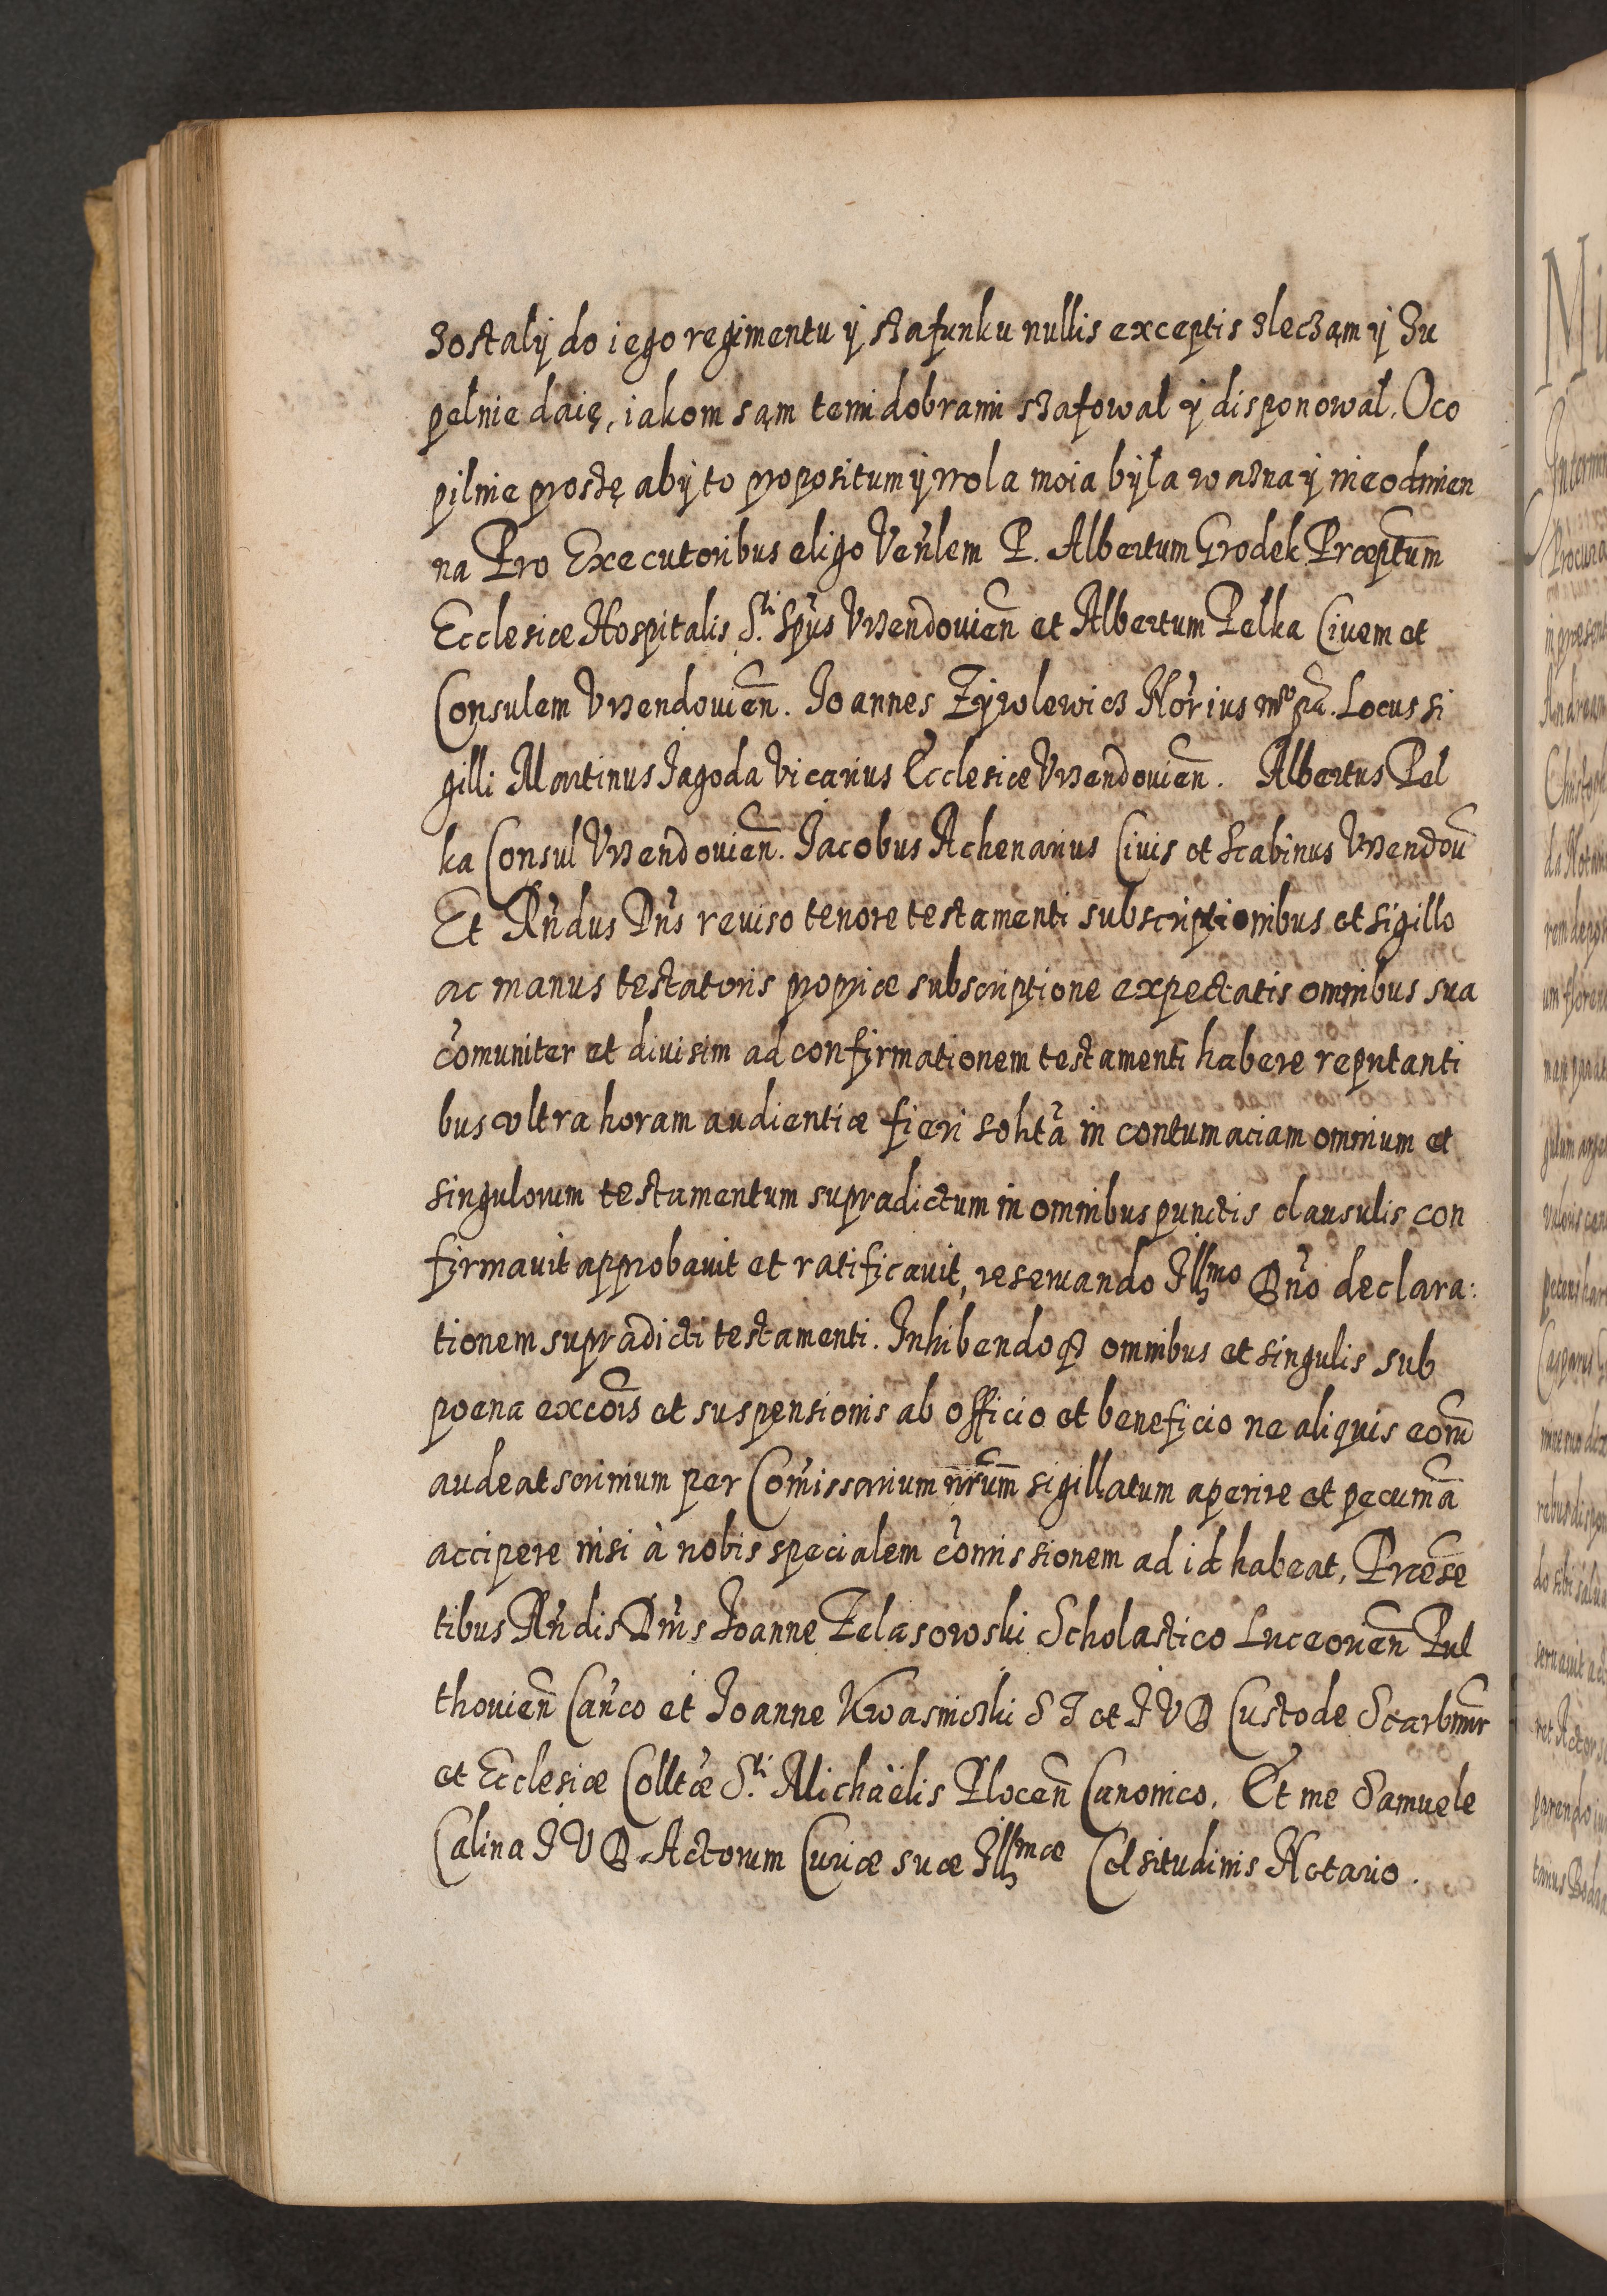 zostalÿ do iego regimentu ÿ szafunku nullis exceptis zleczam ÿ zu
pelnie daię, iakom sąm temi dobrami szafował ÿ disponował. Oco
pilnie proszę abÿ to propositum ÿ wola moia bÿla wazna ÿ nieodmien
na Pro Executoribus eligo Ven̄lem P. Albertum Grodek Præptum̄
Ecclesiæ Hospitalis S.ti Spūs Vrzendouien̄ et Albertum Pelka Ciuem et
Consulem Vrzendouien̄. Joannes Zÿwolewicz Nōrius mp̄a. Locus si
gilli Martinus Jagoda Vicarius Ecclesiæ Vrzendouien̄. Albertus Pel
ka Consul Vrzendouien̄. Jacobus Achenarius Ciuis et Scabinus Vrzendou̅
Et Rn̄dus Dn̄s reuiso tenore testamenti subscriptionibus et sigillo
ac manus testatoris propriæ subscriptione expectatis omnibus sua
cōmuniter et diuisim ad confirmationem testamenti habere reputanti
bus vltra horam audientiæ fieri solitā in contumaciam omnium et
singulorum testamentum supradictum in omnibus punctis clausulis con
firmauit approbauit et ratificauit, reseruando Illmo Dn̄o declara:
tionem supradicti testamenti. Inhibendoq3 omnibus et singulis sub
poena excōis et suspensionis ab officio et beneficio ne aliquis eorū
audeat scrinium per Comissarium nr̄um sigillatum aperire et pecuniā
accipere nisi à nobis specialem cōmissionem ad id habeat, Præse
tibus Rn̄dis Dn̄is Joanne Zelasowski Scholastico Luceouen̄ Pul
thouien̄ Can̄co et Joanne Kwasniczki S T et I V D Custode Scarbimr̄
et Ecclesiæ Colltæ S.ti Michaëlis Plocen̄ Canonico. Et me Samuele
Calina I V D Actorum Curiæ suæ Illmæ Celsitudinis Notario.